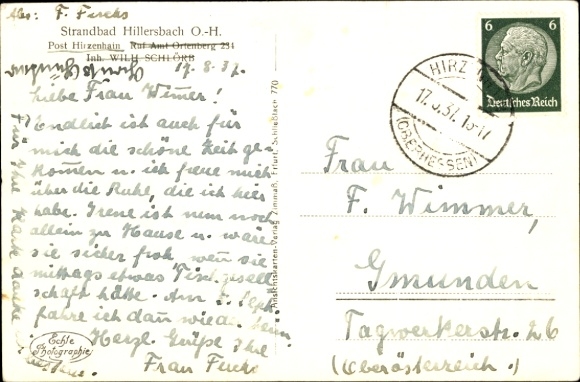 Abs: F. Fircks
Strandbad Hillersbach O.-H.
Post Hirzenhain Ruf Amt Ortenberg 234
Inh. WILH SCHLÖRB
17.8.37.
Liebe Frau Wimmer!
Endlich ist auch für
mich die schöne Zeit ge-
kommen u. ich freue mich
über die Ruhe, die ich hier
habe. Irene ist nun noch
allein zu Hause u. wäre
sie sicher froh, wenn sie
mittags etwas Tischgesell-
schaft hätte. Am
fahre ich dann wieder heim.
Herzl. Grüße Ihre
Frau Fircks
Für Ihre Karte danke
Echte
Photographie
Ansichtskarten-Verlag Zimmaß, Erfurt, Schließfach 770
6 6
Deutsches Reich
HIRZ
17.8.37.15-17
(OBERHESSEN)
Frau
F. Wimmer,
Gmunden
Tagwerkerstr. 26
(Oberösterreich.)